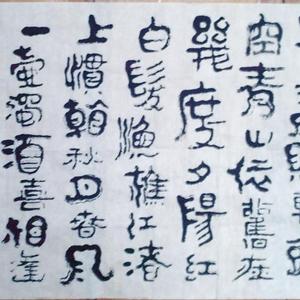 空青山依舊在
幾度夕陽紅
白髮漁樵江渚
上慣看秋月春風
一壺濁酒喜相逢